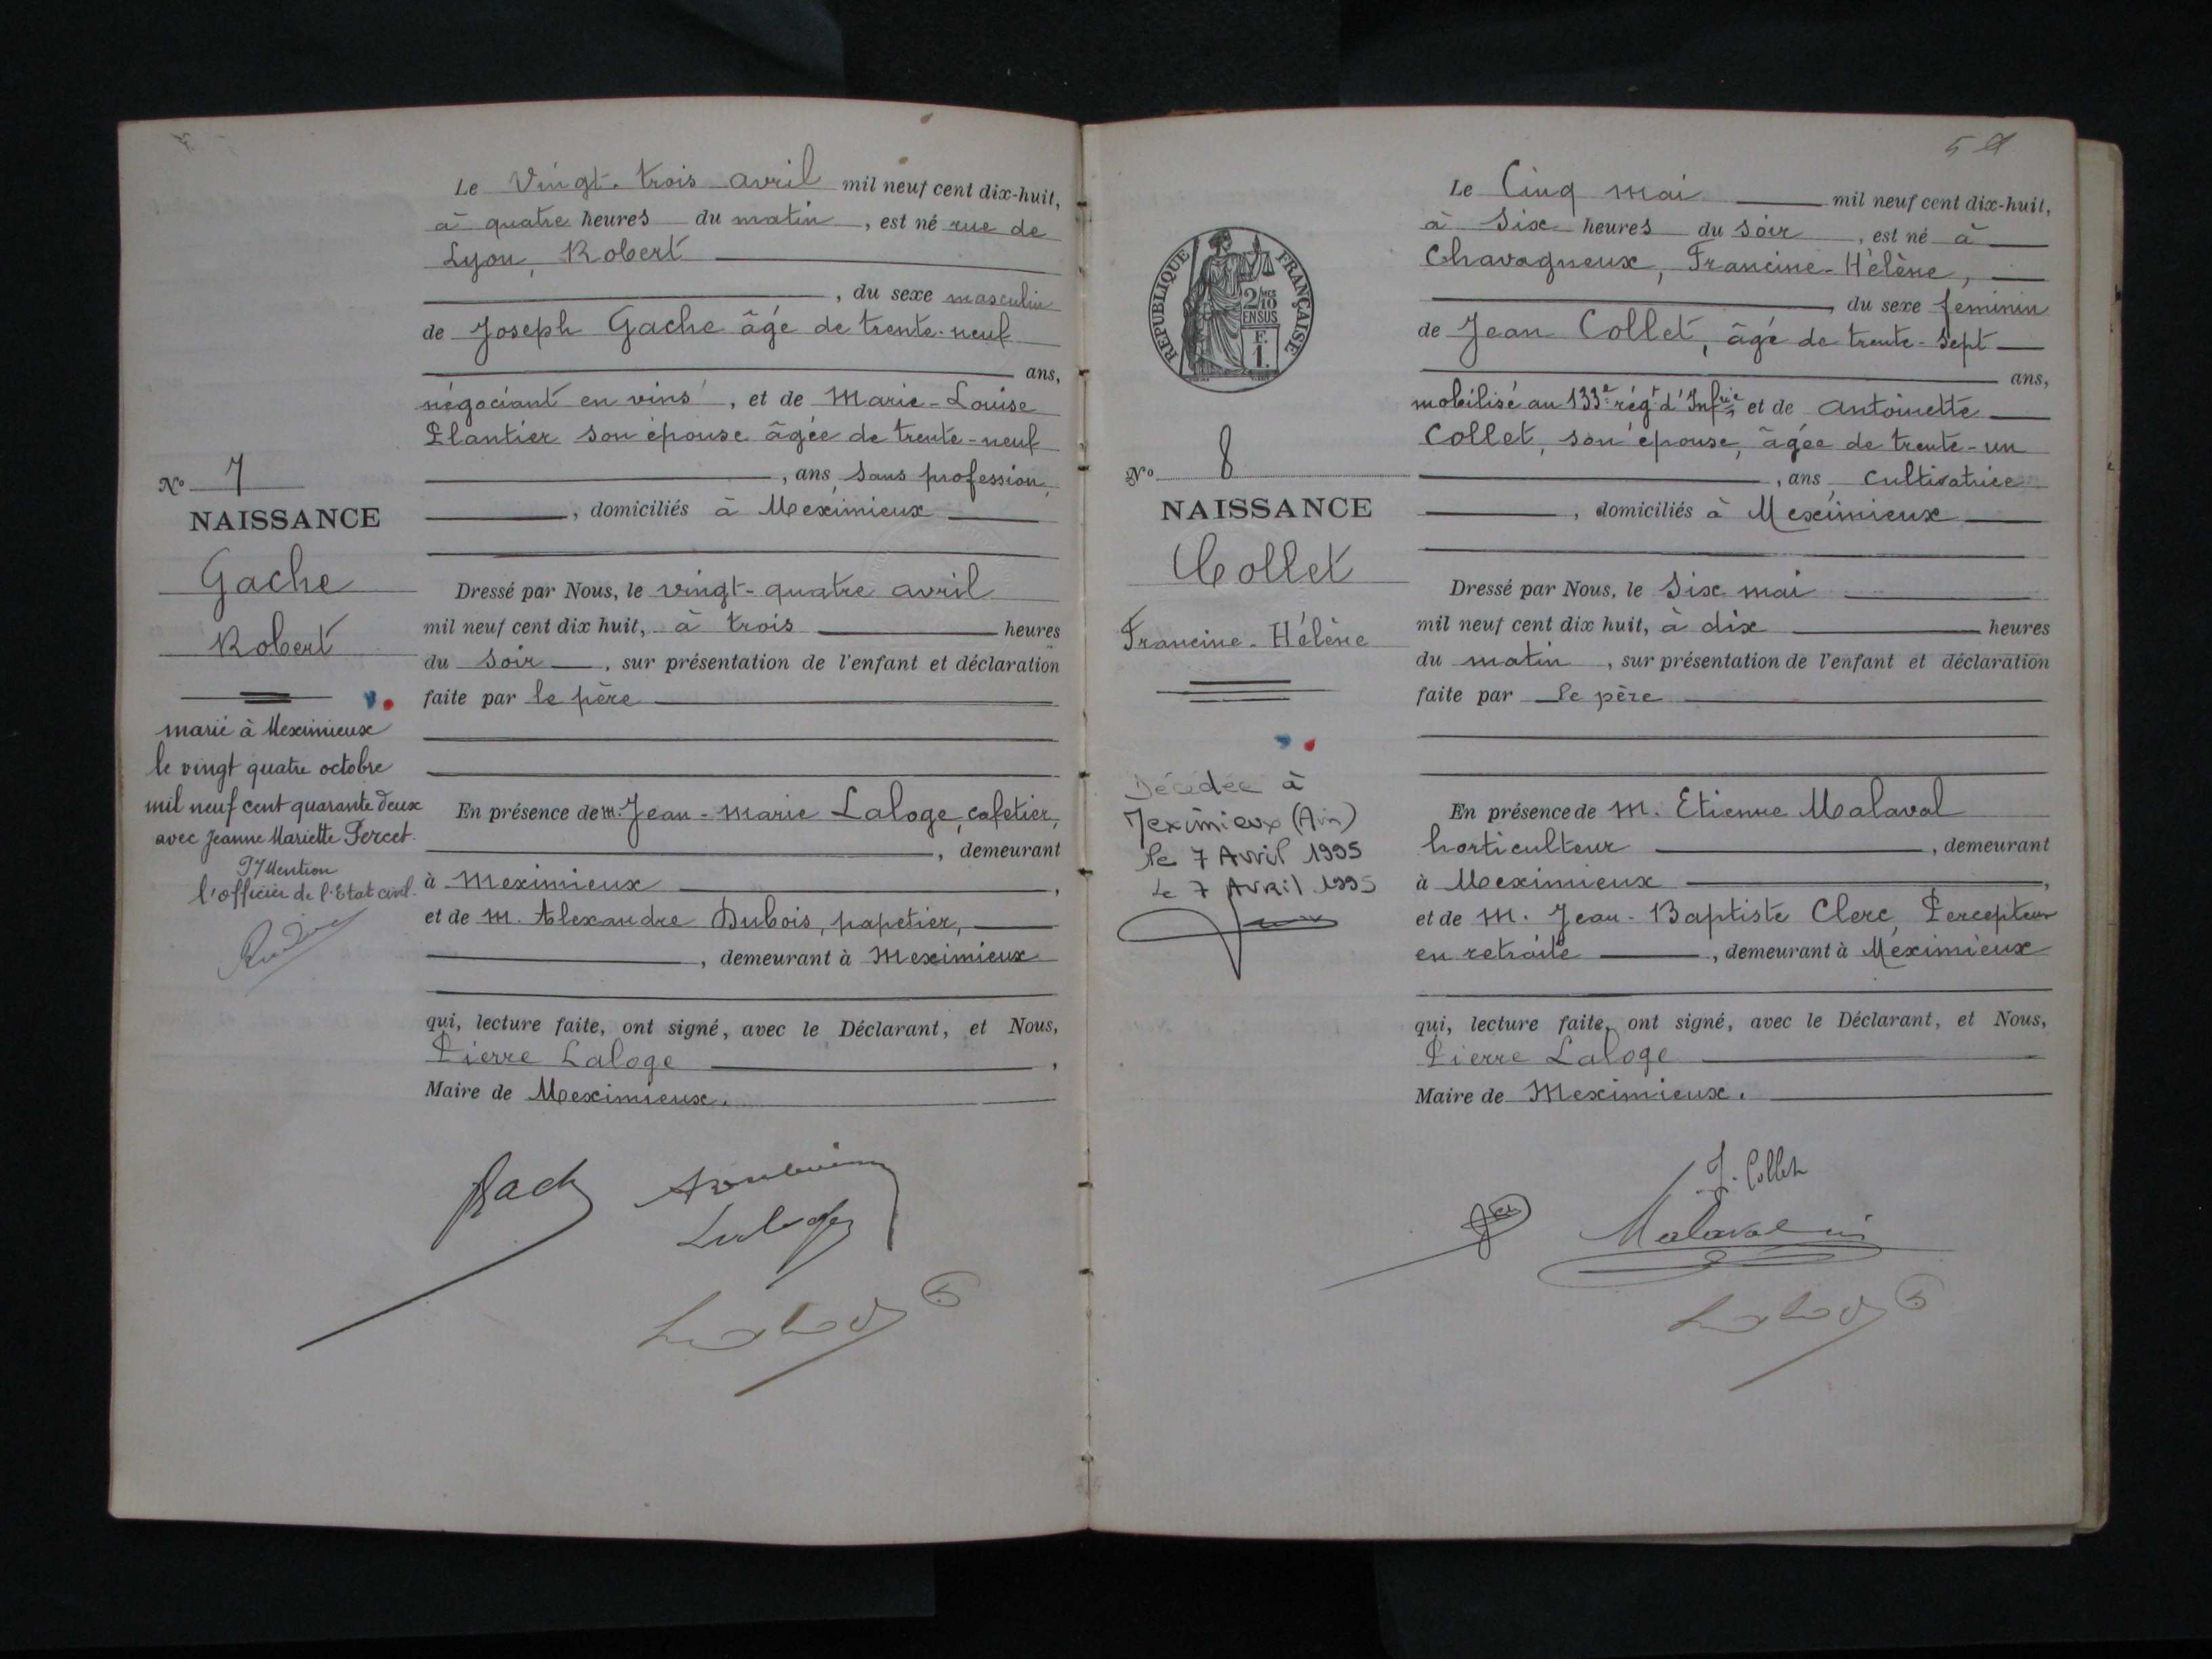 Le Vingt-trois avril mil neuf cent dix-huit,
à quatre heures du matin, est né rue de
Lyon, Robert
, du sexe masculin
de Joseph Gache âgé de trente-neuf
ans,
négociant en vins, et de Marie-Louise
Plantier son épouse âgée de trente-neuf
, ans, sans profession,
, domiciliés à Meximieux
Dressé par Nous, le vingt-quatre avril
mil neuf cent dix huit, à trois heures
du soir, sur présentation de l'enfant et déclaration
faite par le père
En présence de m. Jean-Marie Laloge, cafetier,
, demeurant
à Meximieux,
et de M. Alexandre Dubois, papetier,
, demeurant à Meximieux
qui, lecture faite, ont signé, avec le Déclarant, et Nous,
Pierre Laloge,
Maire de Meximieux.
No 7
NAISSANCE
Gache
Robert
marié à Meximieux
le vingt quatre octobre
mil neuf cent quarante deux
avec Jeanne Mariette Percet.
Mention
l'officier de l'Etat civil.
RÉPUBLIQUE FRANÇAISE
2/10
EN SUS
F.
1.
No 8
NAISSANCE
Collet
Francine-Hélène
Décédée à
Meximieux (Ain)
le 7 Avril 1995
Le 7 Avril 1995
Le Cinq mai mil neuf cent dix-huit,
à Six heures du soir, est né à
Chavagneux, Francine-Hélène,
du sexe feminin
de Jean Collet, âgé de trente-sept
ans,
mobilisé au 133e régt d'Infrie et de Antoinette
Collet, son épouse, âgée de trente-un
, ans, cultivatrice
, domiciliés à Meximieux
Dressé par Nous, le Six mai
mil neuf cent dix huit, à dix heures
du matin, sur présentation de l'enfant et déclaration
faite par le père
En présence de M. Etienne Malaval
horticulteur, demeurant
à Meximieux,
et de M. Jean-Baptiste Clerc, Percepteur
en retraite, demeurant à Meximieux
qui, lecture faite, ont signé, avec le Déclarant, et Nous,
Pierre Laloge
Maire de Meximieux.
J. Collet
Malaval